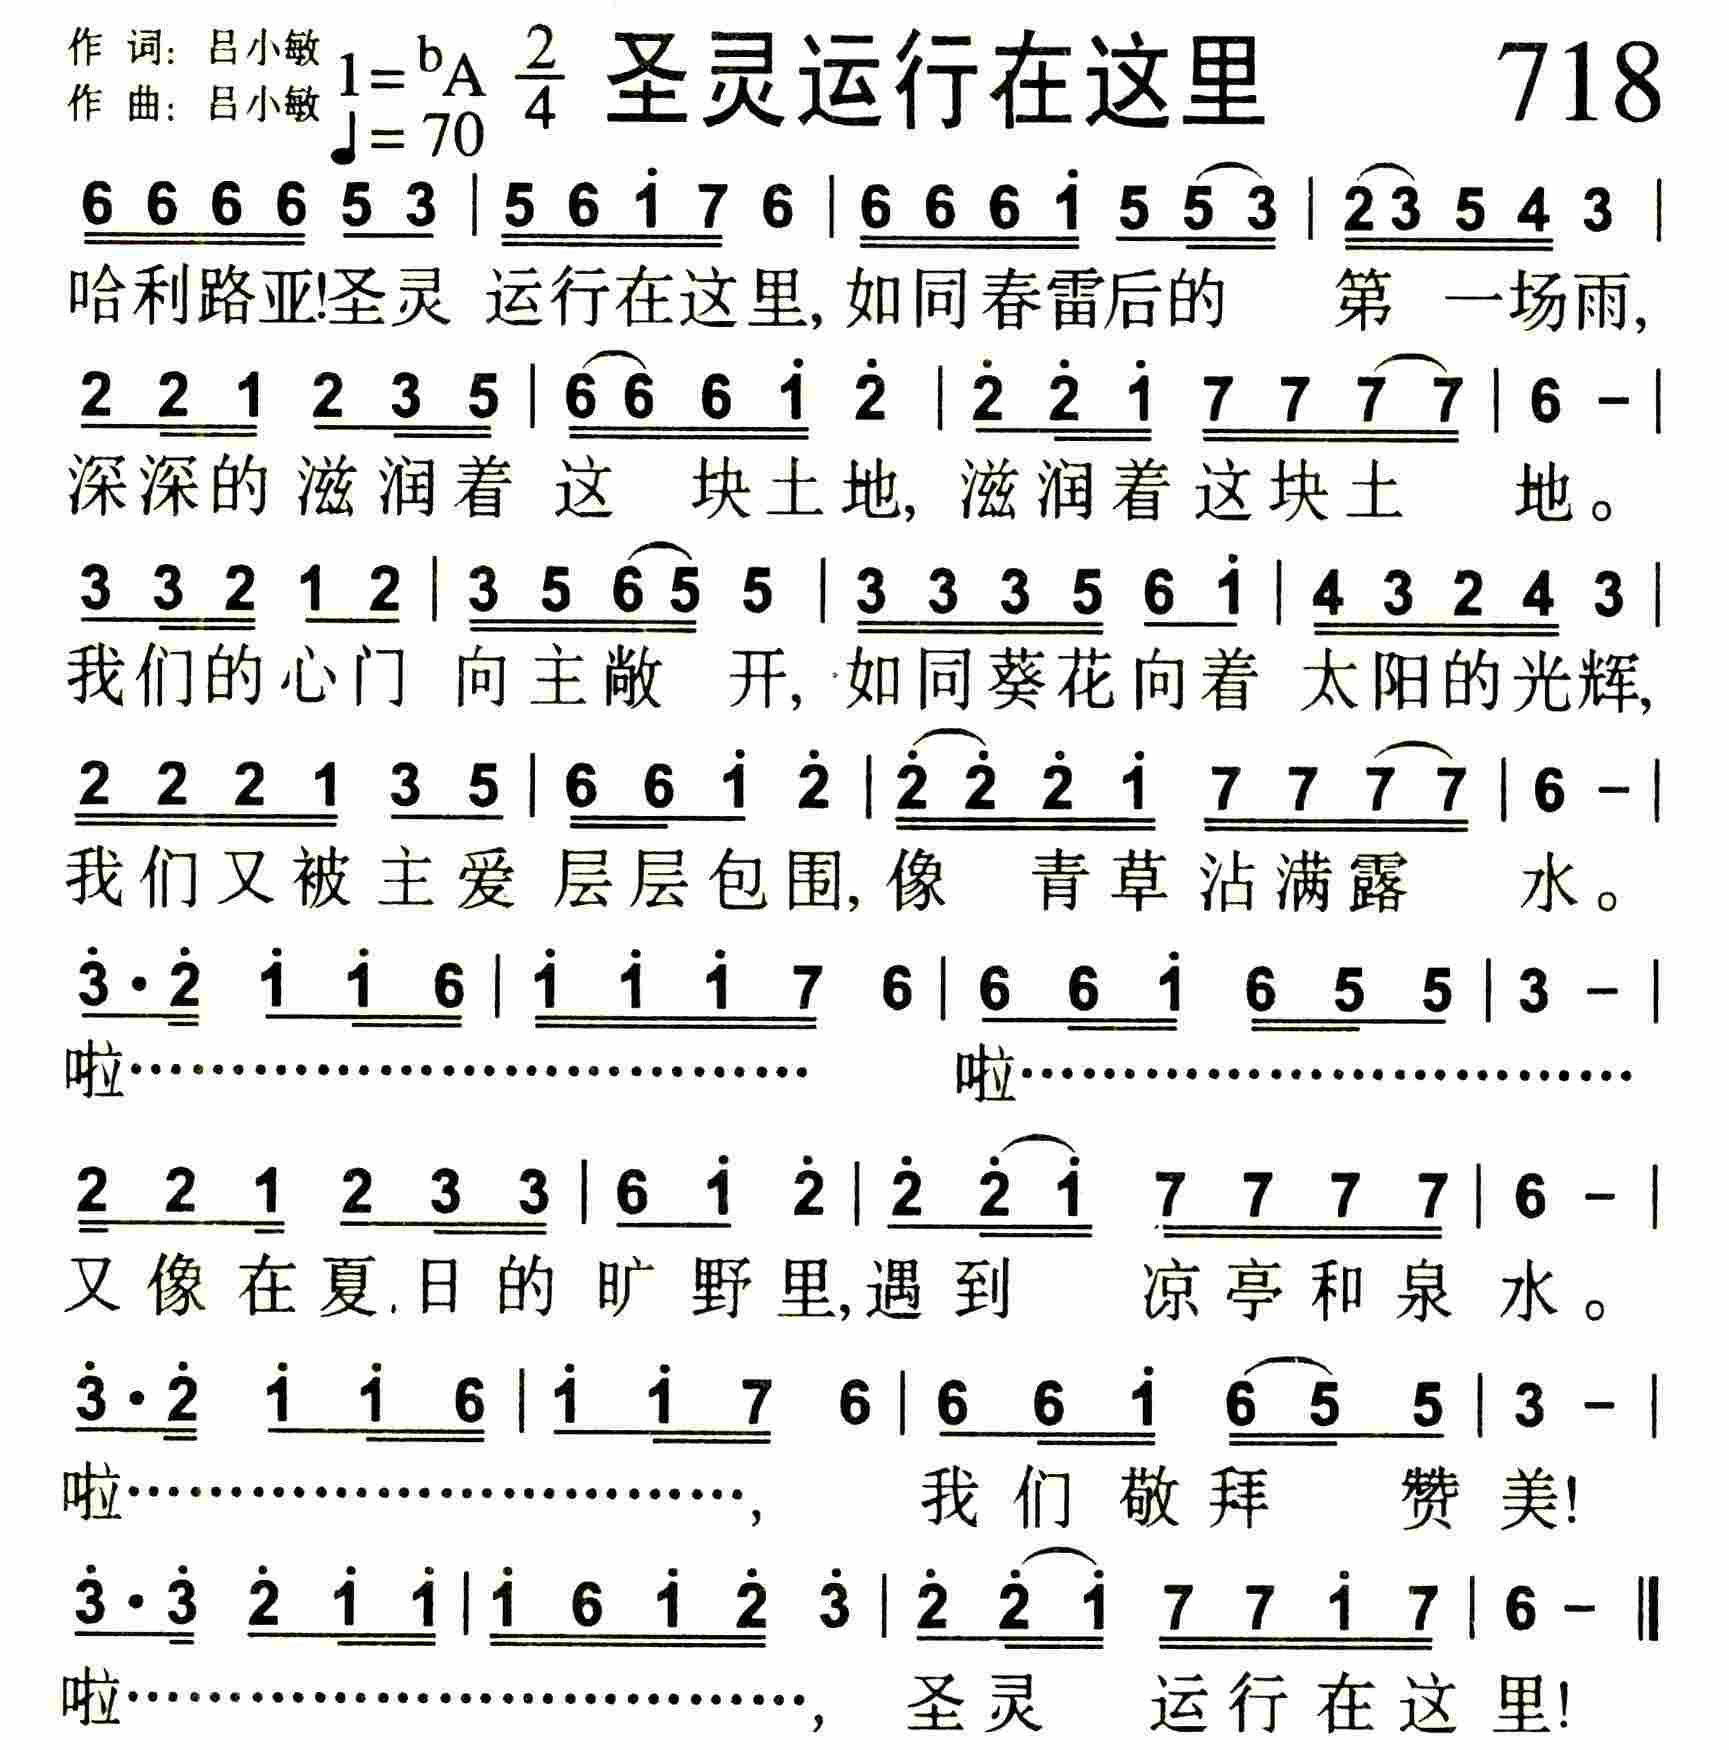 作 词：吕小敏 1=ᵇA 2/4 圣灵运行在这里 718
作 曲：吕小敏 ♩=70
6 6 6 6 5 3 | 5 6 i 7 6 | 6 6 6 i 5 5 3 | 2 3 5 4 3 |
哈利路亚!圣灵 运行在这里, 如同春雷后的 第 一场雨,
2 2 1 2 3 5 | 6 6 6 i 2̇ | 2̇ 2̇ i 7 7 7 7 | 6 – |
深深的 滋润着 这 块土地, 滋润着这块土 地。
3 3 2 1 2 | 3 5 6 5 5 | 3 3 3 5 6 i | 4 3 2 4 3 |
我们的心门 向主敞 开, 如同葵花向着 太阳的光辉,
2 2 2 1 3 5 | 6 6 i 2̇ | 2̇ 2̇ 2̇ i 7 7 7 7 | 6 – |
我们又被主爱 层层包围, 像 青草沾满露 水。
3̇ · 2̇ i i 6 | i i i 7 6 | 6 6 i 6 5 5 | 3 – |
啦…………………………… 啦……………………………
2 2 1 2 3 3 | 6 i 2̇ | 2̇ 2̇ i 7 7 7 7 | 6 – |
又像在夏日的 旷野里, 遇到 凉亭和泉 水。
3̇ · 2̇ i i 6 | i i 7 6 | 6 6 i 6 5 5 | 3 – |
啦……………………………, 我们敬拜 赞 美!
3̇ · 3̇ 2̇ i i | i 6 i 2̇ 3̇ | 2̇ 2̇ i 7 7 i 7 | 6 – ‖
啦……………………………, 圣灵 运行在这 里!